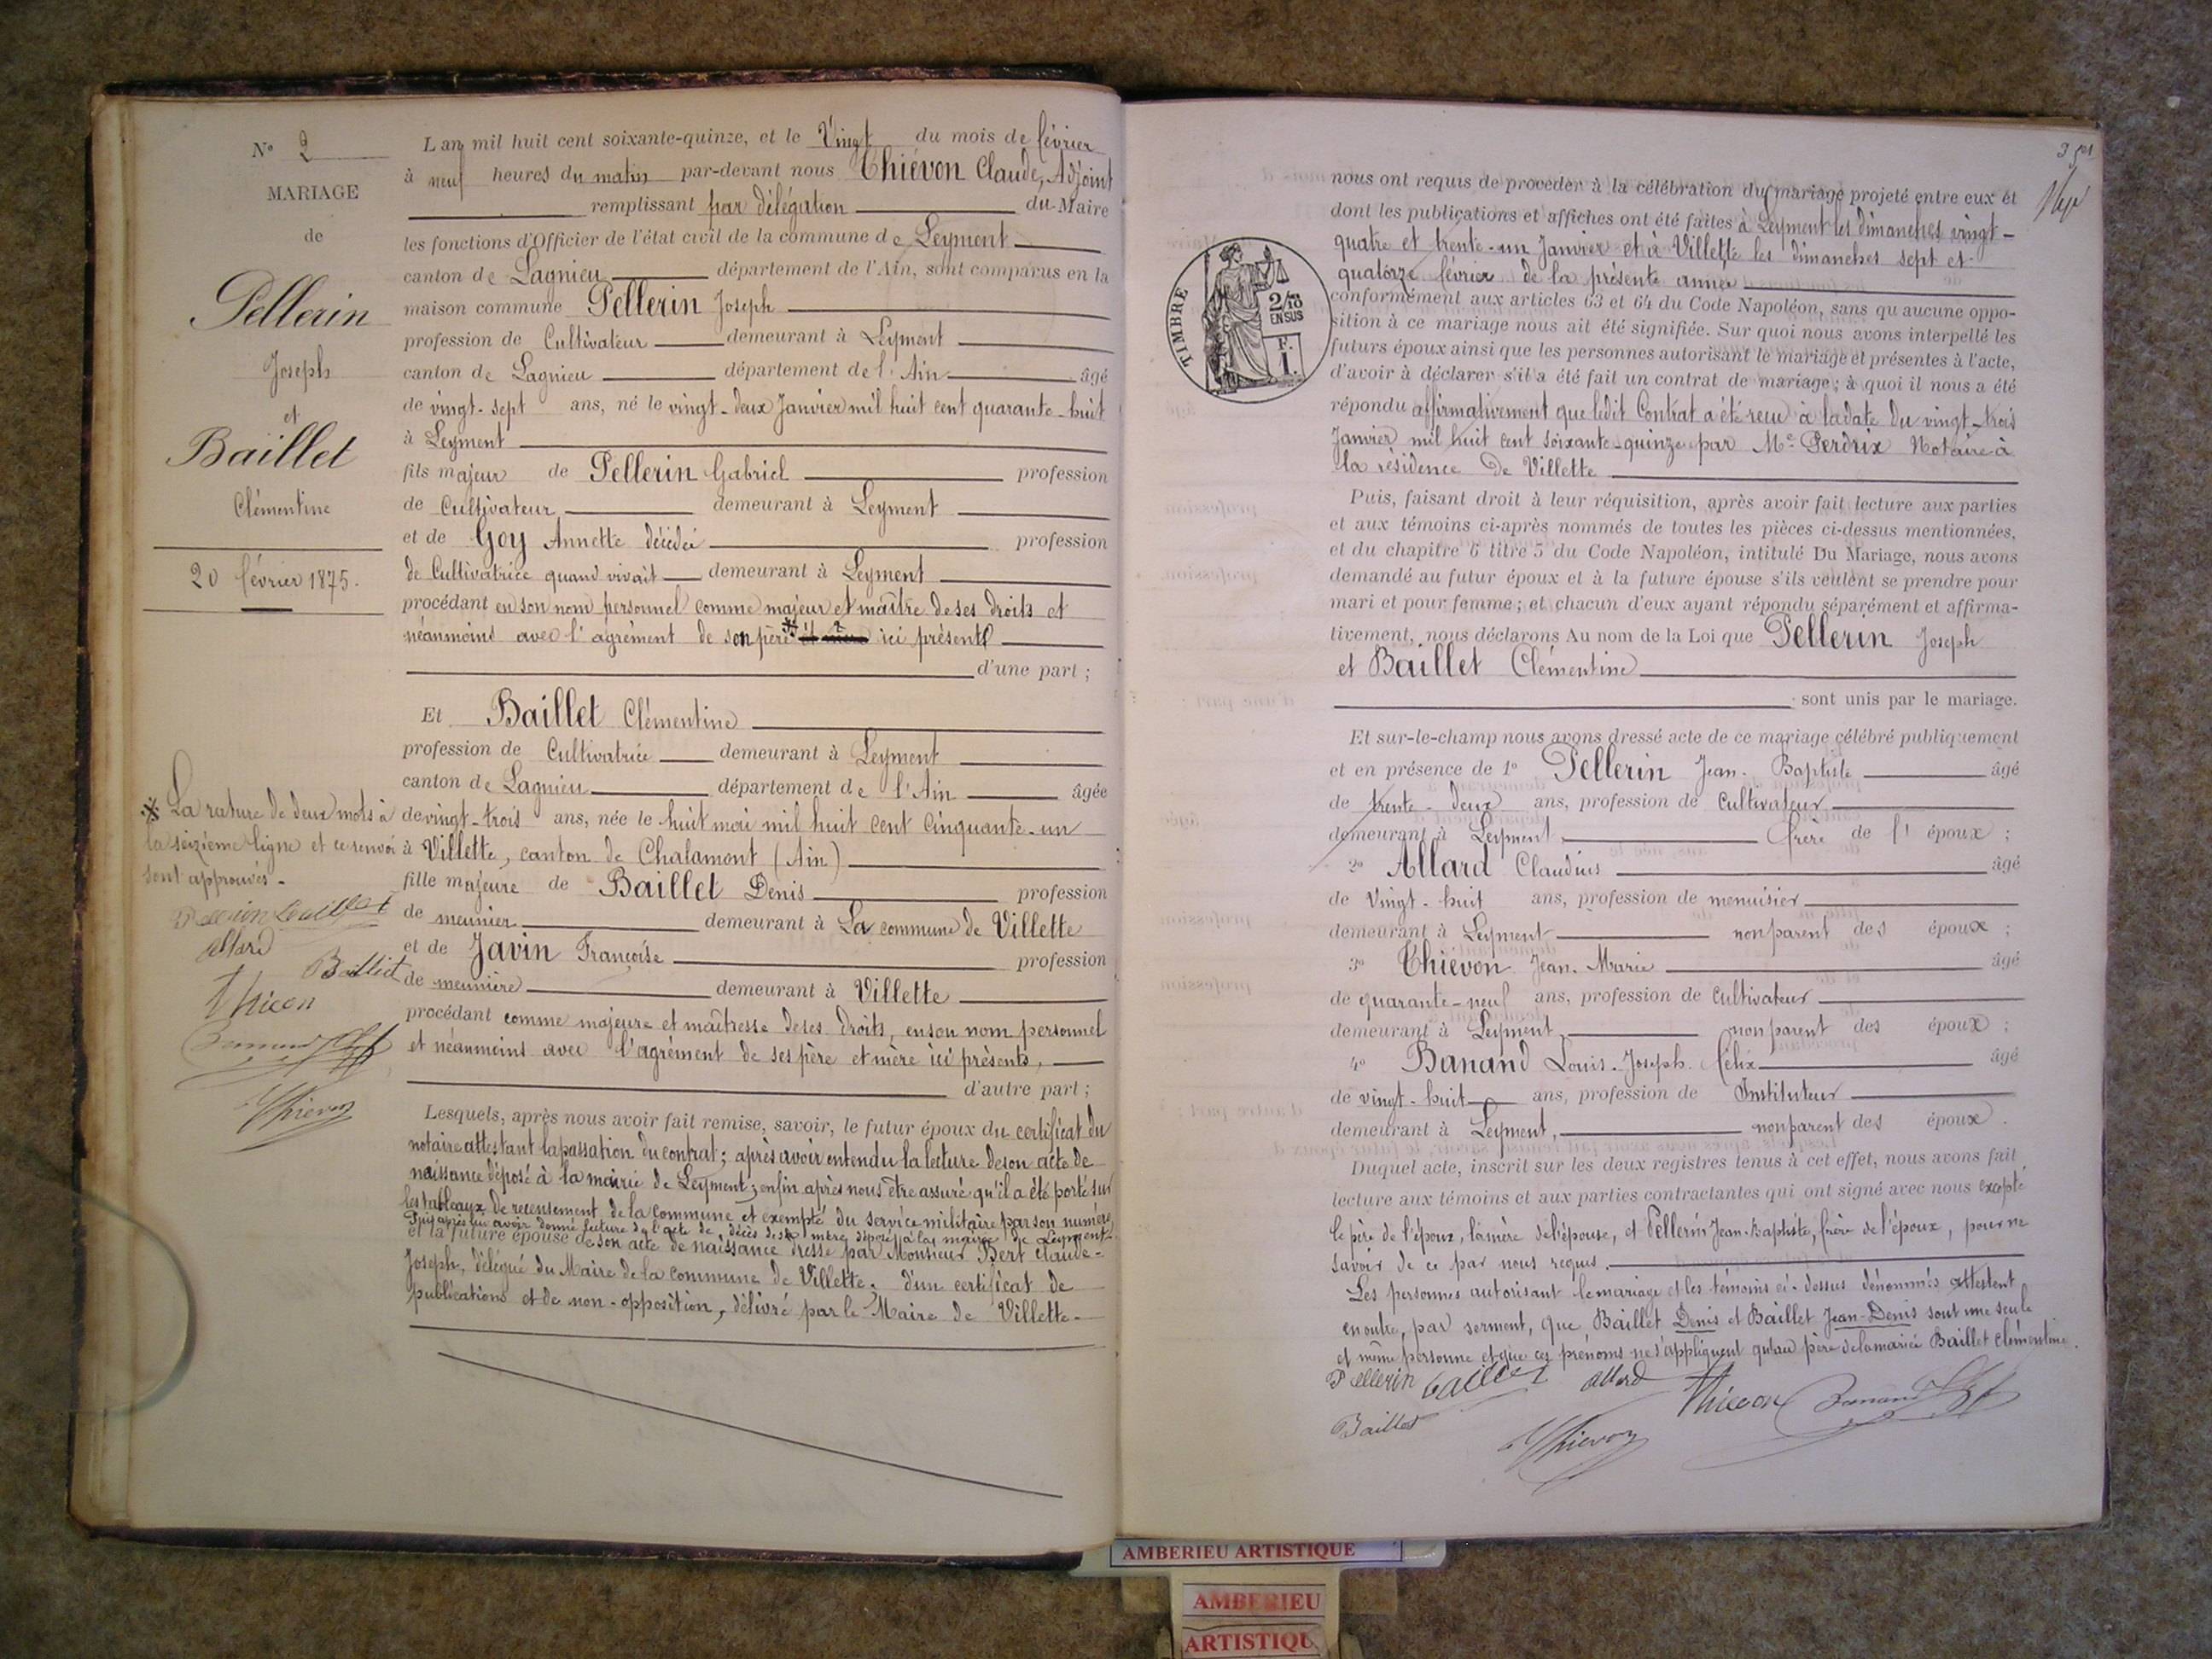 N° 2
MARIAGE
de
Pellerin
Joseph
et
Baillet
Clémentine
20 février 1875.
L'an mil huit cent soixante-quinze, et le Vingt du mois de février
à neuf heures du matin par-devant nous Thiévon Claude, Adjoint
remplissant par délégation du Maire
les fonctions d'Officier de l'état civil de la commune de Leyment
canton de Lagnieu département de l'Ain, sont comparus en la
maison commune Pellerin Joseph
profession de Cultivateur demeurant à Leyment
canton de Lagnieu département de l'Ain âgé
de vingt-sept ans, né le vingt-deux Janvier mil huit cent quarante-huit
à Leyment
fils majeur de Pellerin Gabriel profession
de Cultivateur demeurant à Leyment
et de Goy Annette décédée profession
de Cultivatrice quand vivait demeurant à Leyment
procédant en son nom personnel comme majeur et maître de ses droits et
néanmoins avec l'agrément de son père * et mère ici présent
d'une part ;
Et Baillet Clémentine
profession de Cultivatrice demeurant à Leyment
canton de Lagnieu département de l'Ain âgée
de vingt-trois ans, née le huit mai mil huit cent cinquante-un
à Villette, canton de Chalamont (Ain)
fille majeure de Baillet Denis profession
de meunier demeurant à La commune de Villette
et de Javin Françoise profession
de meunière demeurant à Villette
procédant comme majeure et maîtresse de ses droits, en son nom personnel
et néanmoins avec l'agrément de ses père et mère ici présents,
d'autre part ;
Lesquels, après nous avoir fait remise, savoir, le futur époux du certificat du
notaire attestant la passation du contrat ; après avoir entendu la lecture de son acte de
naissance déposé à la mairie de Leyment ; enfin après nous être assuré qu'il a été porté sur
les tableaux de recensement de la commune et exempté du service militaire par son numéro,
Puis après lui avoir donné lecture de l'acte de décès de sa mère, déposé à la mairie de Leyment.
et la future épouse de son acte de naissance dressé par Monsieur Bert Claude-
Joseph, délégué du Maire de la commune de Villette. d'un certificat de
publications et de non-opposition, délivré par le Maire de Villette.
* La rature de deux mots à
la seizième ligne et ce renvoi
sont approuvés.
Pellerin Baillet
allard
Baillet
Thievon
Thievon
nous ont requis de procéder à la célébration du mariage projeté entre eux et
dont les publications et affiches ont été faites à Leyment les dimanches vingt-
quatre et trente-un Janvier et à Villette les dimanches sept et
quatorze février de la présente année
conformément aux articles 63 et 64 du Code Napoléon, sans qu'aucune oppo-
sition à ce mariage nous ait été signifiée. Sur quoi nous avons interpellé les
futurs époux ainsi que les personnes autorisant le mariage et présentes à l'acte,
d'avoir à déclarer s'il a été fait un contrat de mariage ; à quoi il nous a été
répondu affirmativement que ledit Contrat a été reçu à la date du vingt-trois
Janvier mil huit cent soixante-quinze par Me Perdrix Notaire à
la résidence de Villette
TIMBRE
2/10
EN SUS
F.
1.
Puis, faisant droit à leur réquisition, après avoir fait lecture aux parties
et aux témoins ci-après nommés de toutes les pièces ci-dessus mentionnées,
et du chapitre 6 titre 5 du Code Napoléon, intitulé Du Mariage, nous avons
demandé au futur époux et à la future épouse s'ils veulent se prendre pour
mari et pour femme ; et chacun d'eux ayant répondu séparément et affirma-
tivement, nous déclarons Au nom de la Loi que Pellerin Joseph
et Baillet Clémentine
sont unis par le mariage.
Et sur-le-champ nous avons dressé acte de ce mariage célébré publiquement
et en présence de 1° Pellerin Jean-Baptiste âgé
de trente-deux ans, profession de cultivateur
demeurant à Leyment frère de l'époux ;
2° Allard Claudius âgé
de Vingt-huit ans, profession de menuisier
demeurant à Leyment non parent des époux ;
3° Thiévon Jean-Marie âgé
de quarante-neuf ans, profession de Cultivateur
demeurant à Leyment, non parent des époux ;
4° Banand Louis-Joseph-Félix âgé
de vingt-huit ans, profession de Instituteur
demeurant à Leyment, non parent des époux.
Duquel acte, inscrit sur les deux registres tenus à cet effet, nous avons fait
lecture aux témoins et aux parties contractantes qui ont signé avec nous excepté
le père de l'époux, la mère de l'épouse, et Pellerin Jean-Baptiste, frère de l'époux, pour ne
savoir de ce par nous requis.
Les personnes autorisant le mariage et les témoins ci-dessus dénommés attestent
en outre, par serment, que Baillet Denis et Baillet Jean-Denis sont une seule
et même personne et que ces prénoms ne s'appliquent qu'au père de la mariée Baillet Clémentine.
Pellerin Baillet allard Thievon Banand
Baillet Thievon
AMBERIEU ARTISTIQUE
AMBERIEU
ARTISTIQU